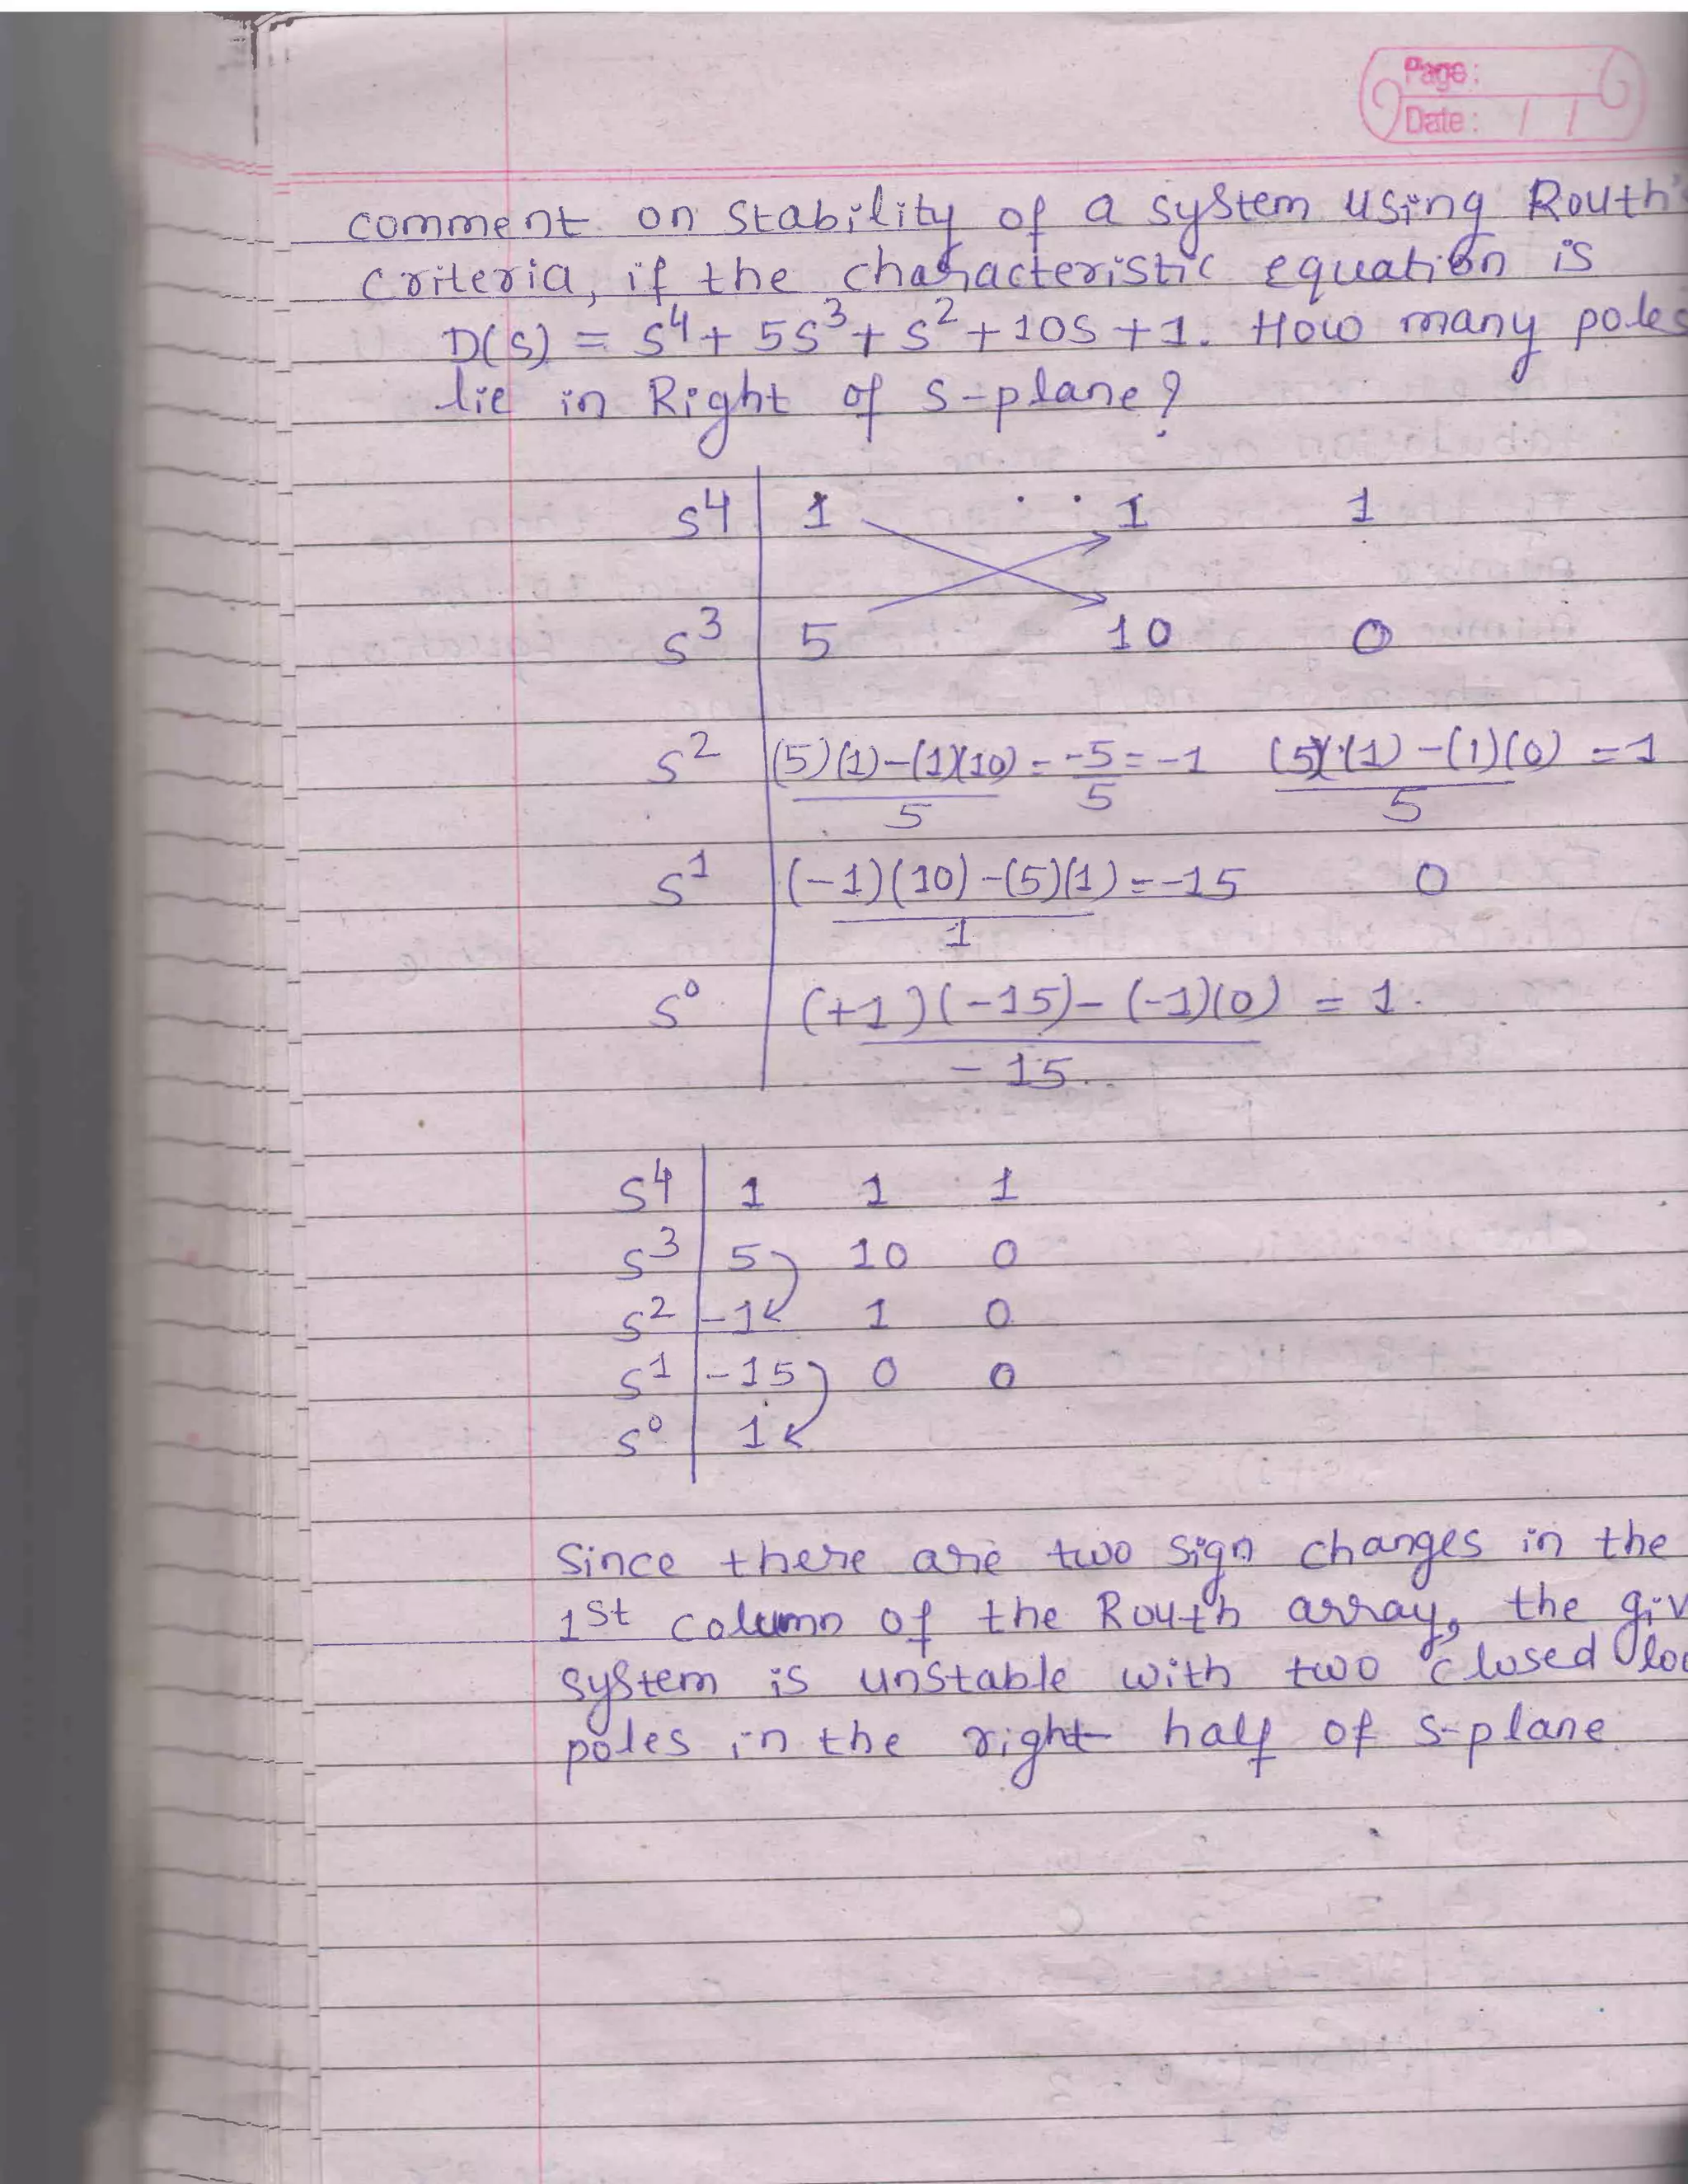 Page:
Date: / /
comment on stability of a system using Routh's
criteria, if the characteristic equation is
D(s) = s⁴ + 5s³ + s² + 10s + 1. How many poles
lie in Right of s-plane?
s⁴ | 1 1 1
s³ | 5 10 0
s² | (5)(1)-(1)(10)/5 = -5/5 = -1 (5)(1)-(1)(0)/5 = 1
s¹ | (-1)(10)-(5)(1)/1 = -15 0
s⁰ | (+1)(-15)-(-1)(0)/-15 = 1
s⁴ | 1 1 1
s³ | 5 10 0
s² | -1 1 0
s¹ | -15 0 0
s⁰ | 1
Since there are two sign changes in the
1st column of the Routh array, the giv
system is unstable with two closed loo
poles in the right half of s-plane